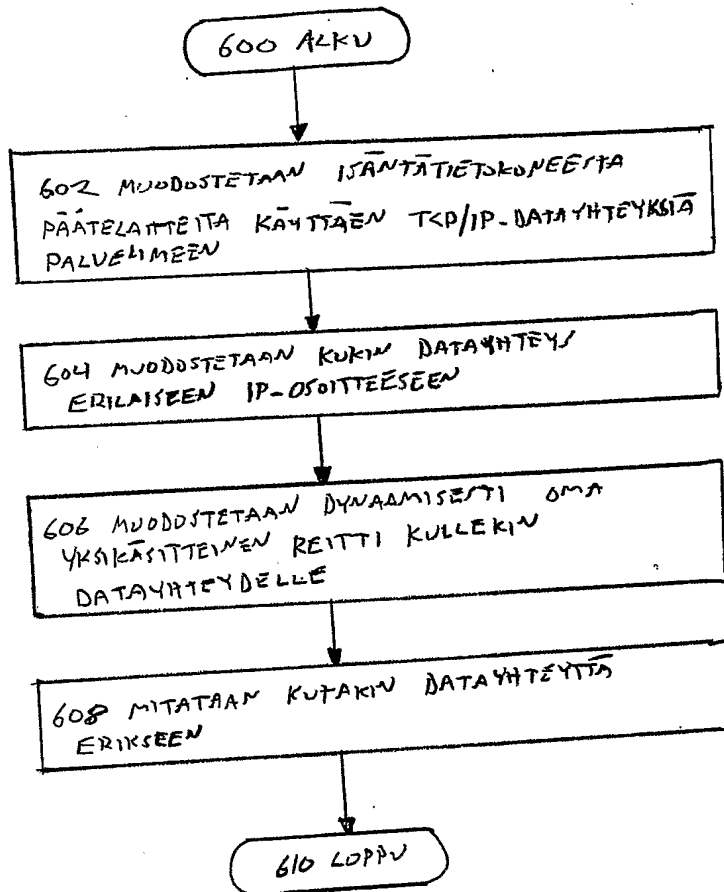 600 ALKU
602 MUODOSTETAAN ISÄNTÄTIETOKONEESTA
PÄÄTELAITTEITA KÄYTTÄEN TCP/IP-DATAYHTEYKSIÄ
PALVELIMEEN
604 MUODOSTETAAN KUKIN DATAYHTEYS
ERILAISEEN IP-OSOITTEESEEN
606 MUODOSTETAAN DYNAAMISESTI OMA
YKSIKÄSITTEINEN REITTI KULLEKIN
DATAYHTEYDELLE
608 MITATAAN KUTAKIN DATAYHTEYTTÄ
ERIKSEEN
610 LOPPU